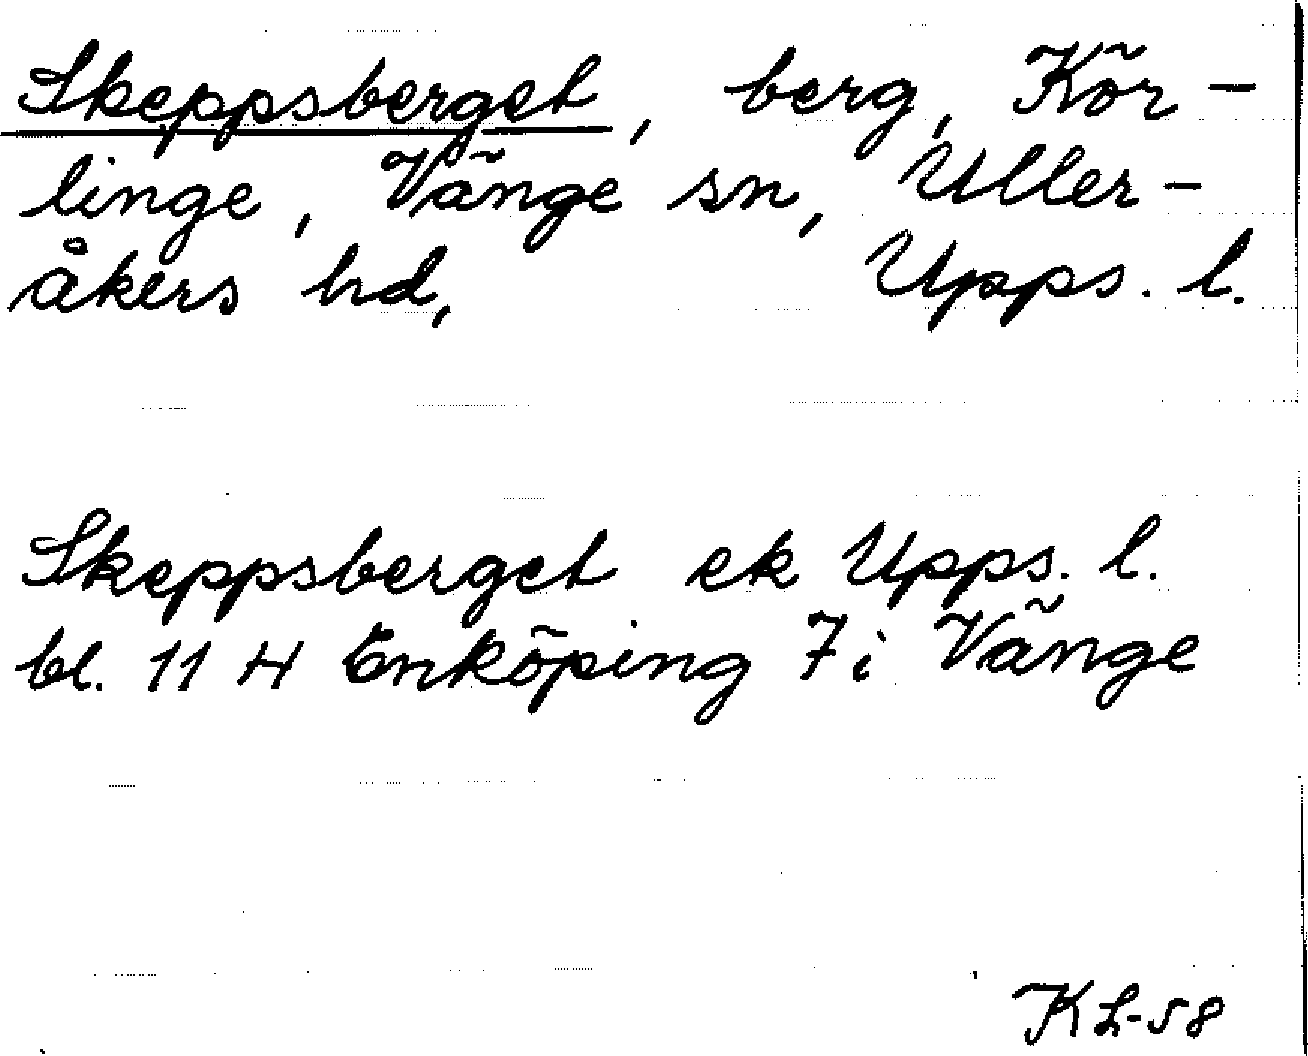 Skeppsberget, berg, Kör-
linge, Vänge sn, Uller-
åkers hd, Upps. l.
Skeppsberget ek Upps. l.
bl. 11 H Enköping 7i Vänge
KL-58